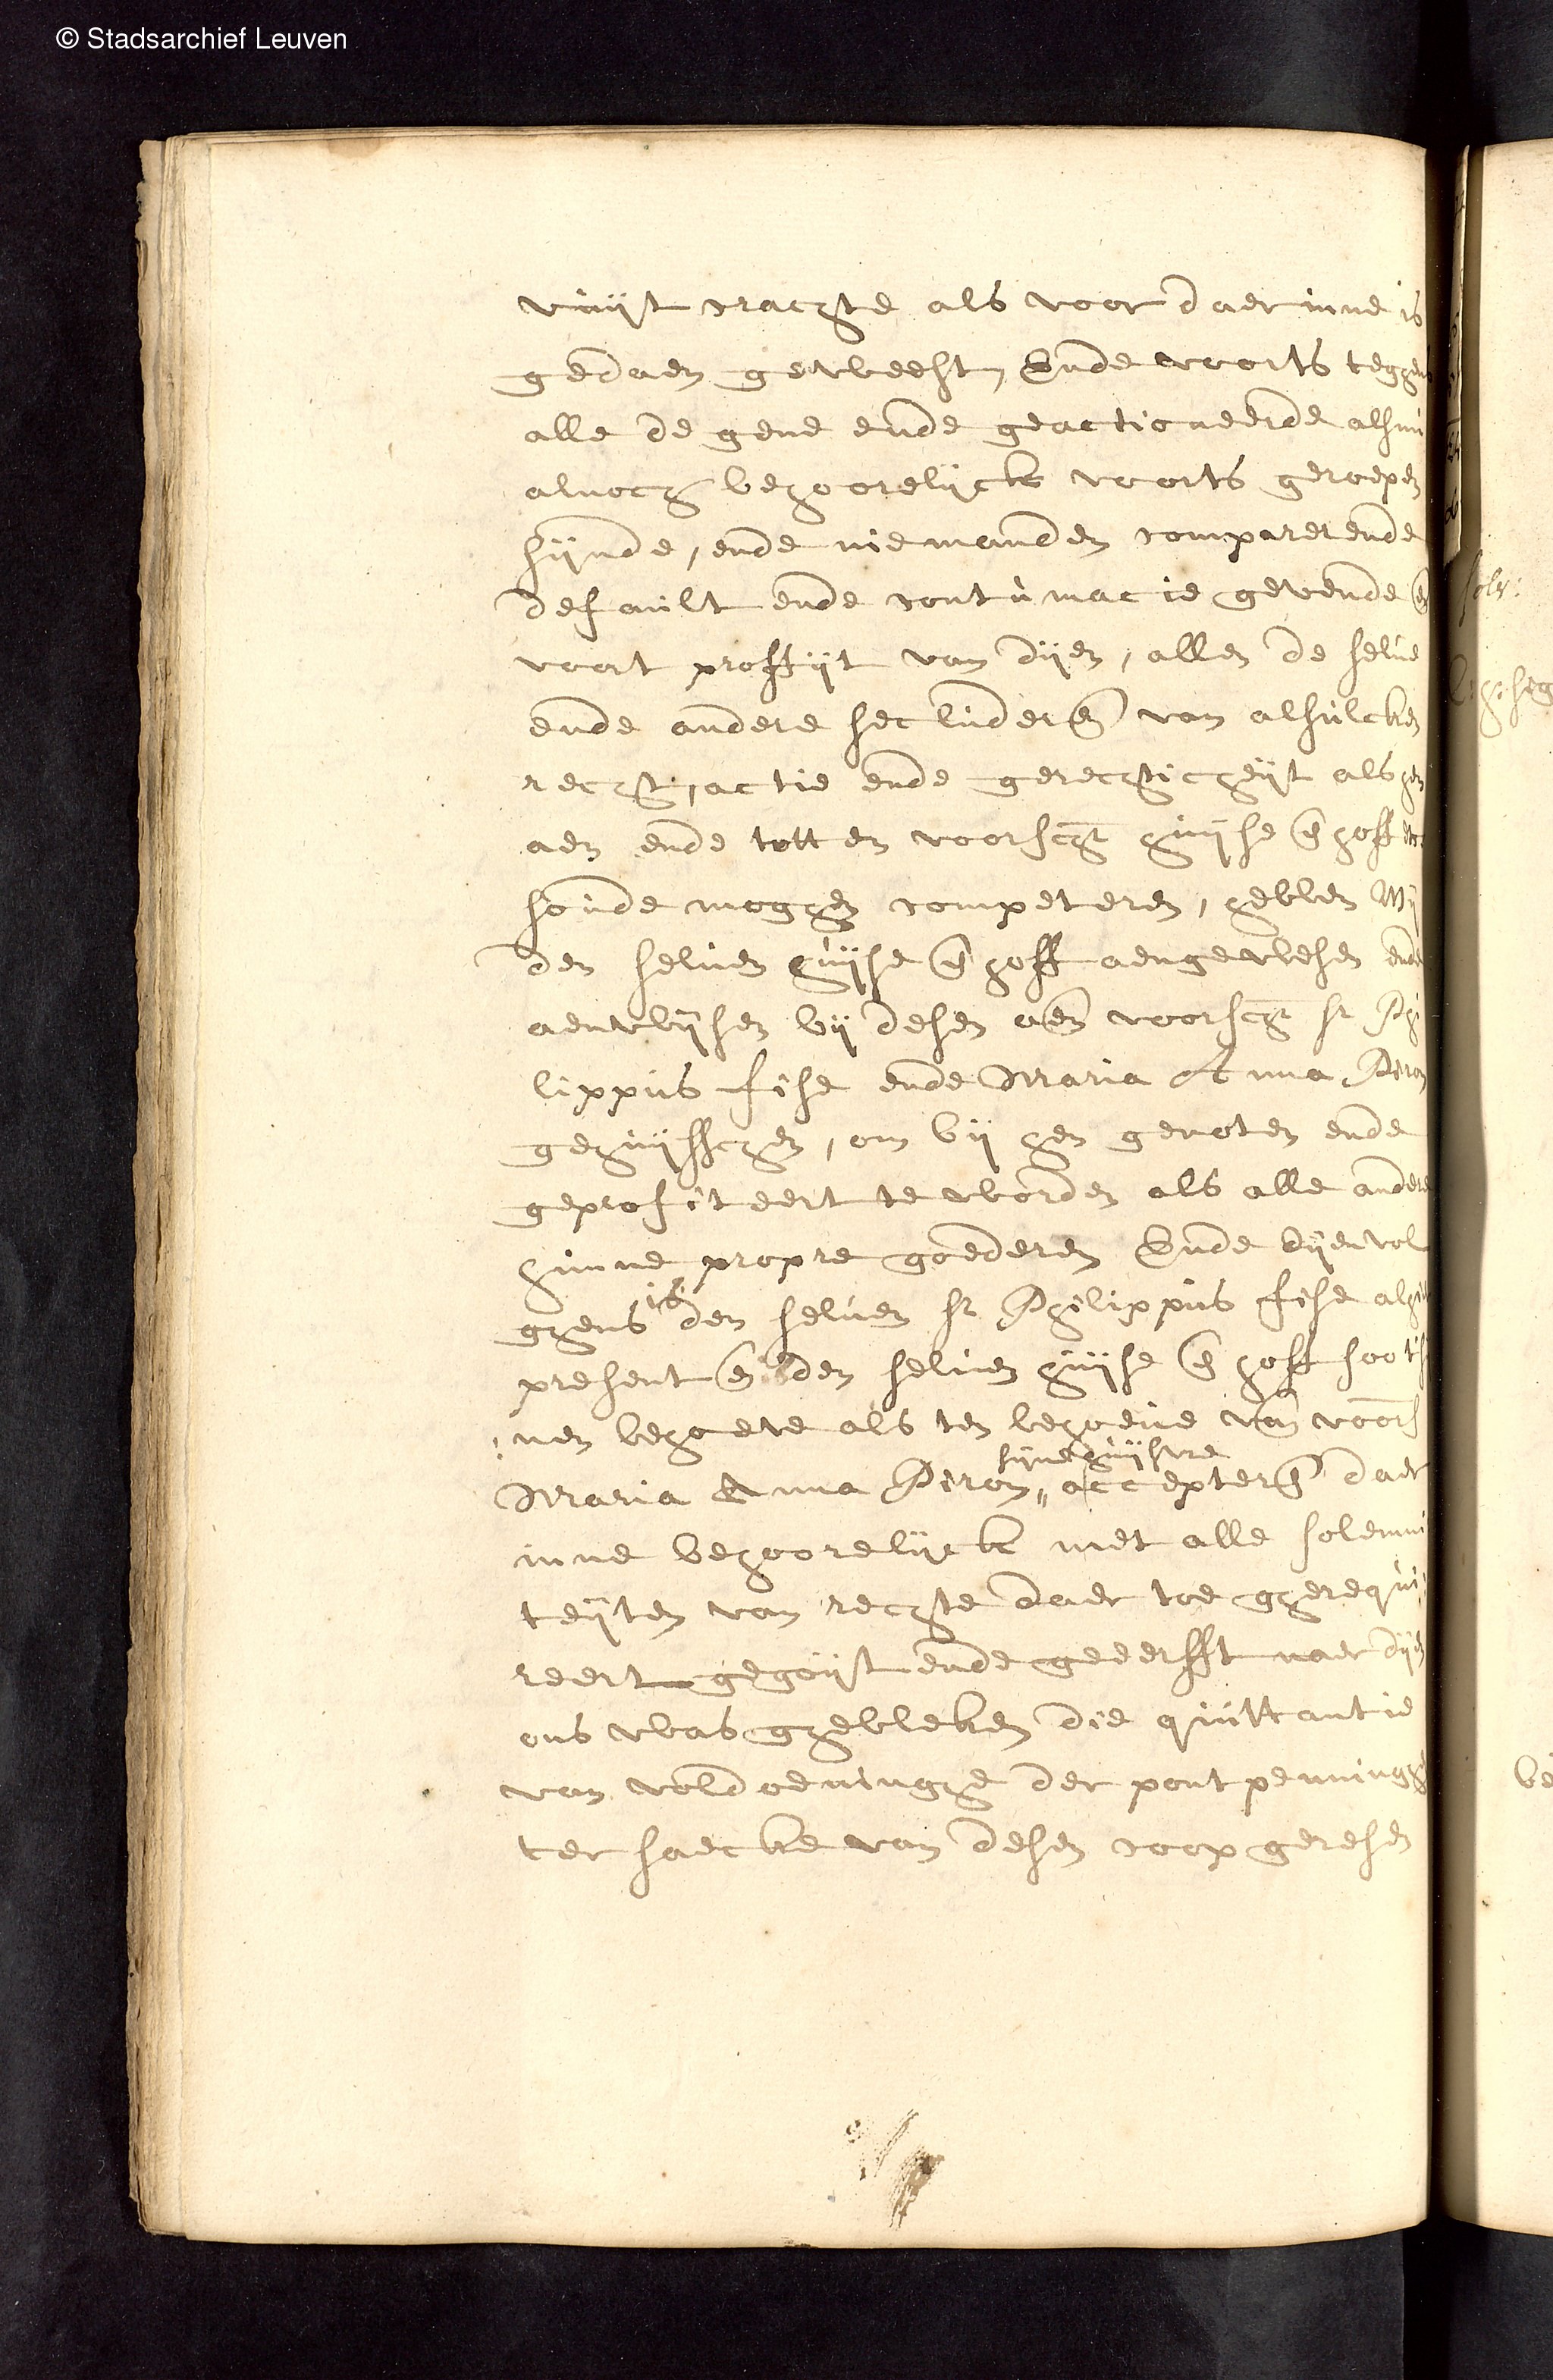 © Stadsarchief Leuven
vuijt crachte als voor daer inne is
gedaen geweest, Ende voorts teghens
alle de gene ende geactioneerde alsnu
alnoch behoorelijck voorts geroepen
sijnde, ende niemanden comparerende
default ende contumacie gevende en
voort proffijt van dijen, allen de selve
ende andere secluderen van alsulcken
recht, actie ende gerechticheijt als hen
aen ende totten voorscr huijse en hoff etc
soude moghen competeren, hebben Wij
den selven huijse en hoff aengewesen ende
aenwijsen bij desen aen voorscr sr Phi
lippus Fise ende Maria Anna Piron
gehuijsschen, om bij hen genoten ende
geprofiteert te worden als alle andere
hunne propre goederen Ende dijenvol
ghens is den selven sr Philippus Fise alhier
present en den selven huijse en hoff soo t
nen behoeve als ten behoeve van voors
Maria Anna Piron, sijne huijsvre accepteren daer
inne behoorelijck met alle solemni
teijten van rechte daer toe gherequi
reert gegoijt ende geerfft naer dijen
ons was ghebleken die quittantie
van voldoeninghe der pontpenninghen
ter saecke van desen coop geresen
solv: